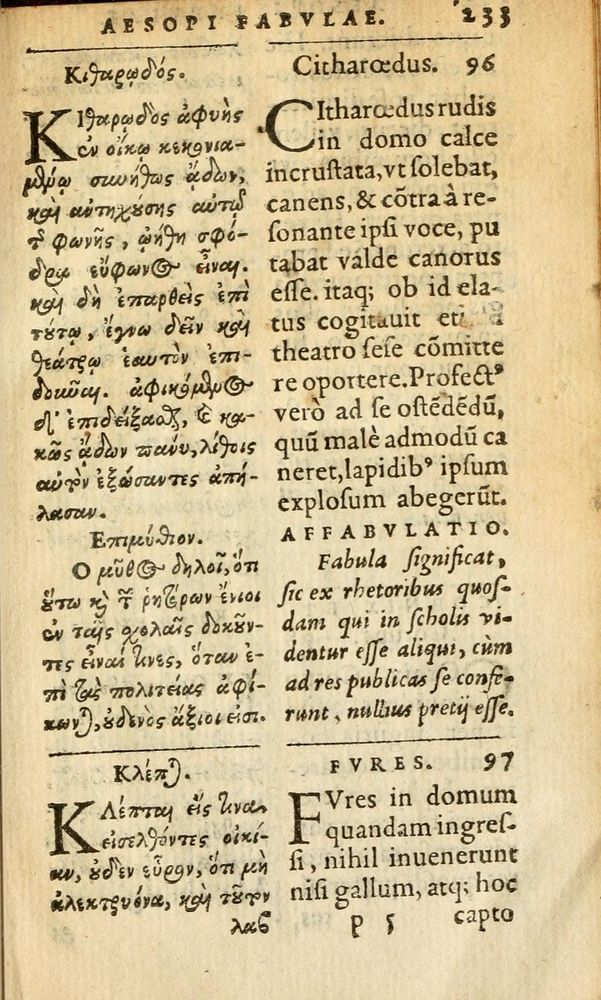 AESOPI FABVLAE. 233
Κιθαρῳδός.
ΚΙθαρῳδὸς ἀφυὴς
ἐν οἴκῳ κεκονια-
μένῳ συνήθως ᾄδων,
καὶ ἀντηχούσης αὐτῷ
τῆς φωνῆς, ᾠήθη σφό-
δρα εὔφωνος εἶναι.
καὶ δὴ ἐπαρθεὶς ἐπὶ
τούτῳ, ἔγνω δεῖν καὶ
θεάτρῳ ἑαυτὸν ἐπι-
δοῦναι. ἀφικόμενος
δ' ἐπιδείξασθαι, καὶ κα-
κῶς ᾄδων πάνυ, λίθοις
αὐτὸν ἐξώσαντες ἀπή-
λασαν.
Επιμύθιον.
Ο μῦθος δηλοῖ, ὅτι
οὕτω καὶ τῶν ῥητόρων ἔνιοι
ἐν ταῖς σχολαῖς δοκοῦν-
τες εἶναί τινες, ὅταν ἐ-
πὶ τὰς πολιτείας ἀφί-
κωνται, οὐδενὸς ἄξιοι εἰσι.
Κλέπται.
ΚΛέπται εἴς τινα
εἰσελθόντες οἰκί-
αν, οὐδὲν εὗρον, ὅτι μὴ
ἀλεκτρυόνα, καὶ τοῦτον
λαβ
Citharœdus. 96
CItharœdus rudis
in domo calce
incrustata, vt solebat,
canens, & cõtra à re-
sonante ipsi voce, pu
tabat valde canorus
esse. itaq; ob id ela-
tus cogitauit eti
theatro sese cõmitte
re oportere. Profect⁹
verò ad se ostẽdẽdũ,
quũ malè admodũ ca
neret, lapidib⁹ ipsum
explosum abegerũt.
AFFABVLATIO.
Fabula significat,
sic ex rhetoribus quos-
dam qui in scholis vi-
dentur esse aliqui, cùm
ad res publicas se confe-
runt, nullius pretij esse.
FVRES. 97
FVres in domum
quandam ingres-
si, nihil inuenerunt
nisi gallum, atq; hoc
P 5 capto